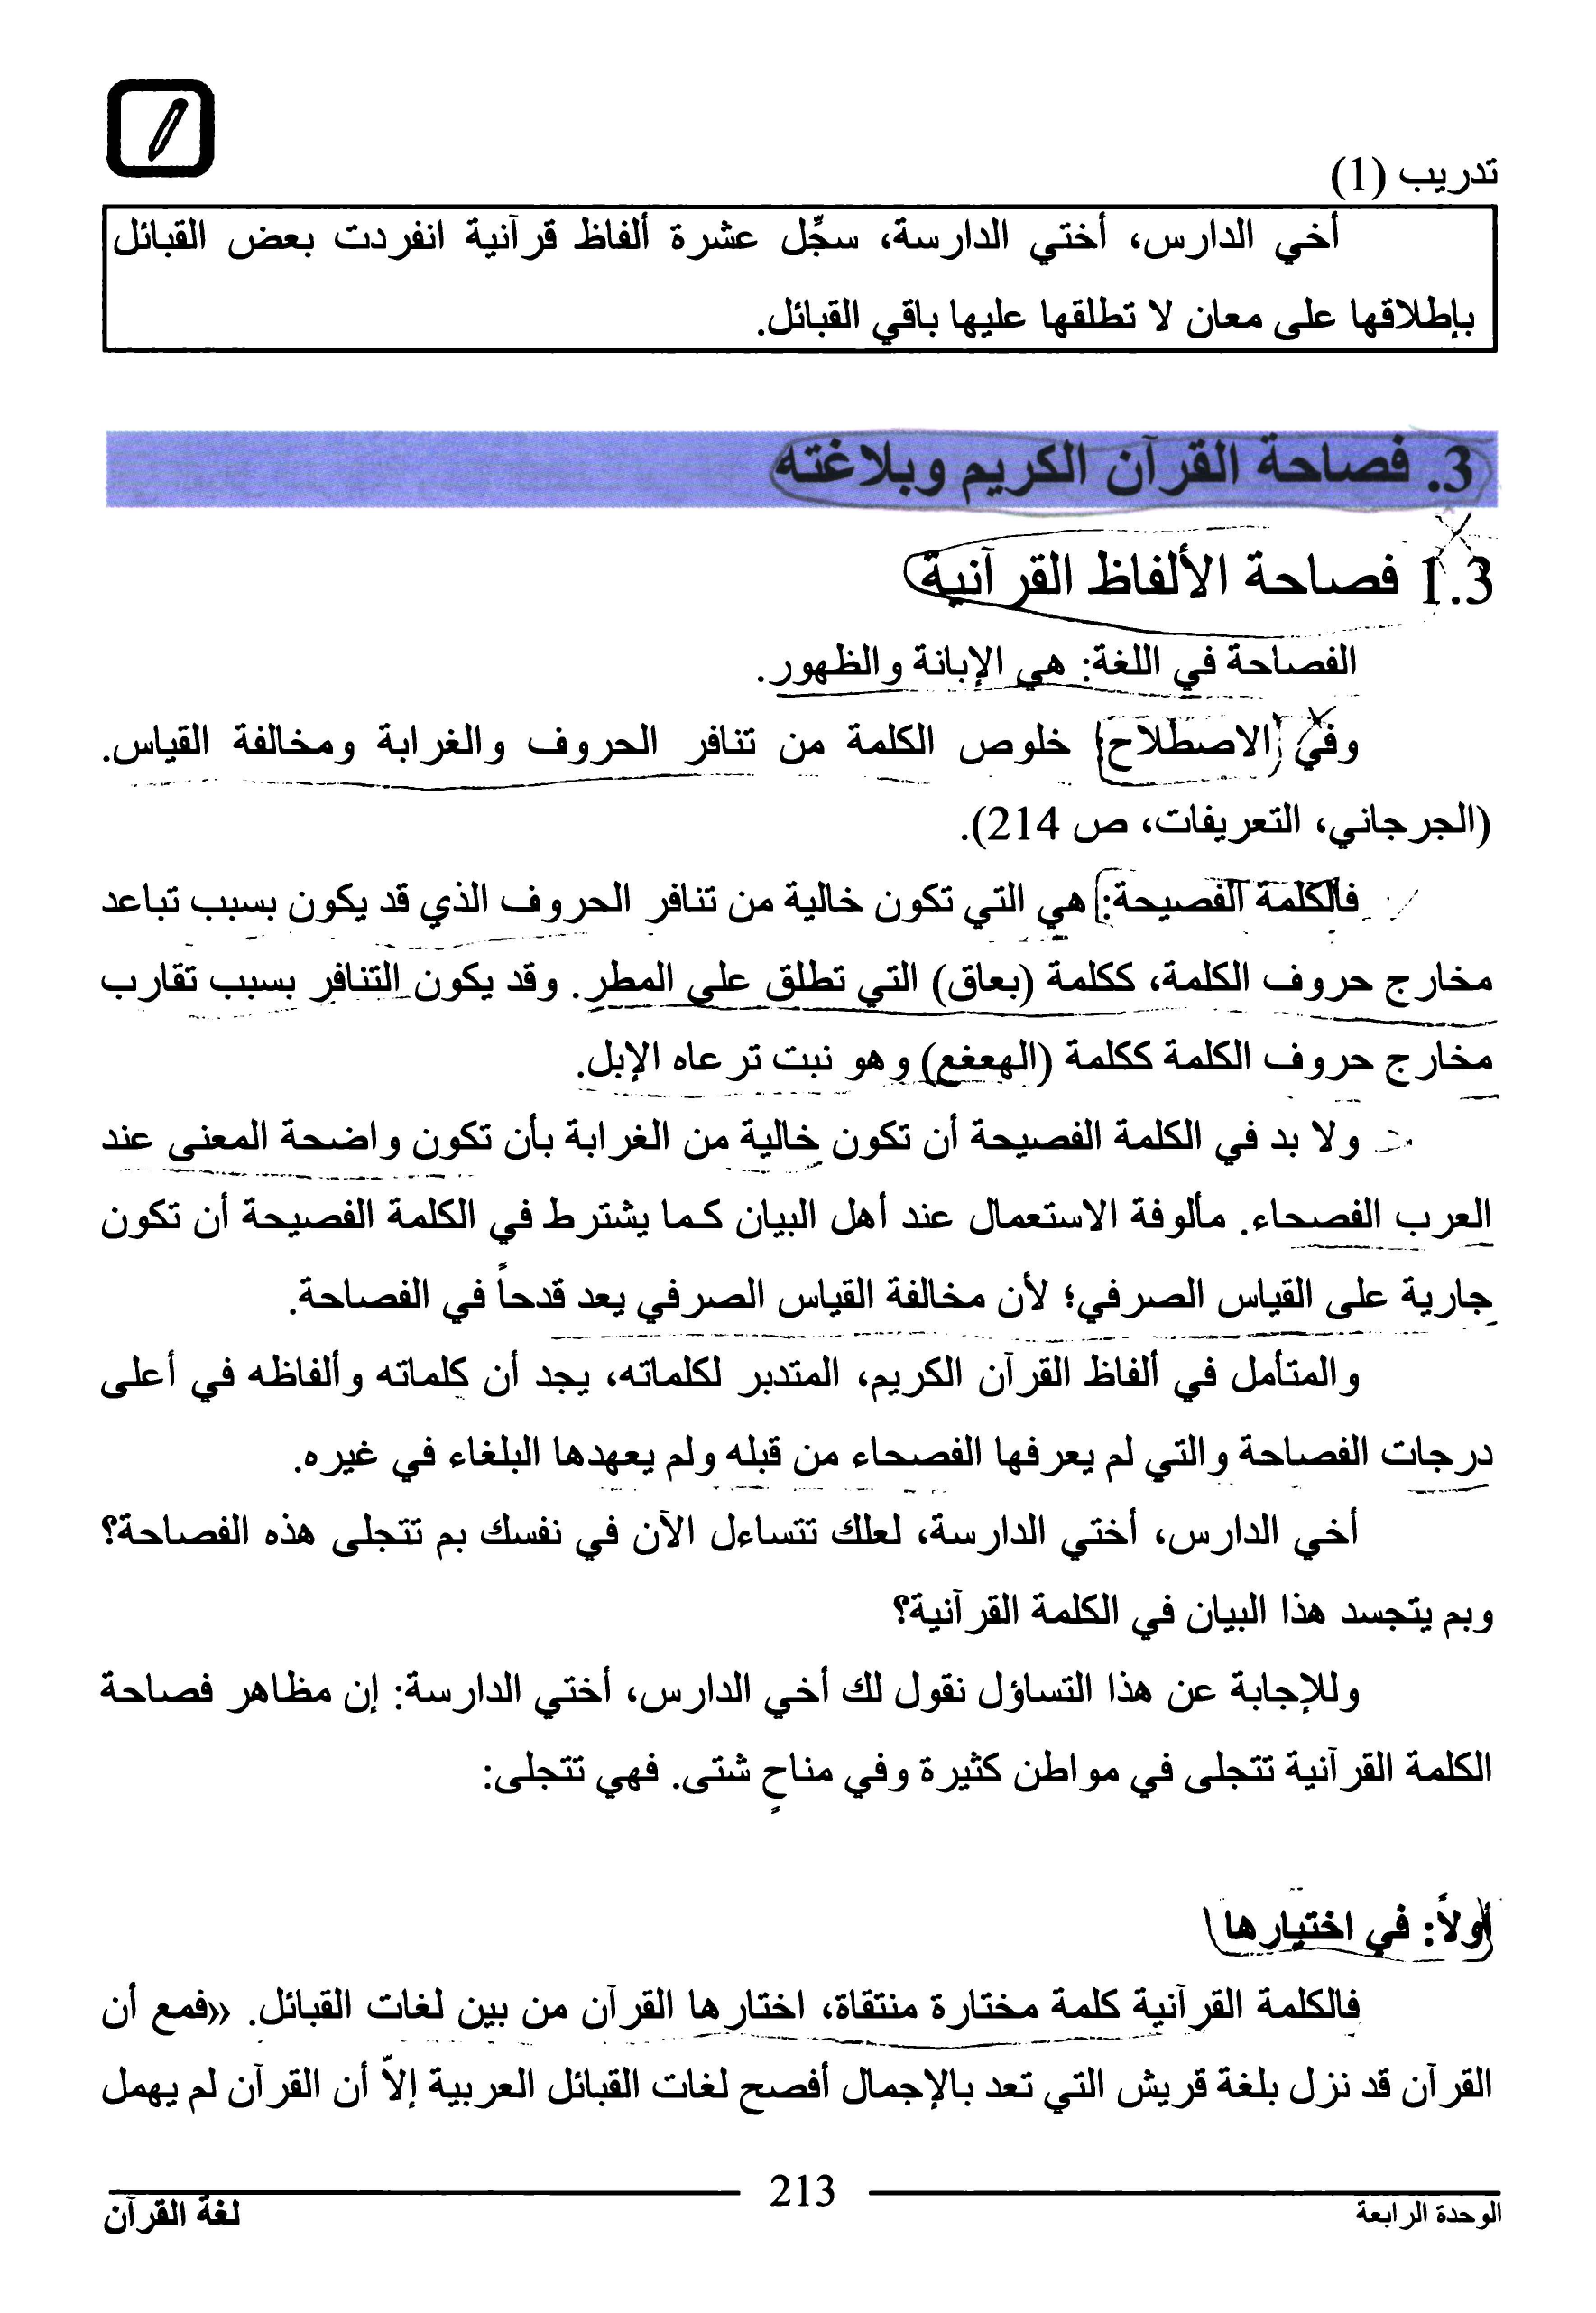 تدريب (1)
أخي الدارس، أختي الدارسة، سجِّل عشرة ألفاظ قرآنية انفردت بعض القبائل
بإطلاقها على معان لا تطلقها عليها باقي القبائل.
3. فصاحة القرآن الكريم وبلاغته
1.3 فصاحة الألفاظ القرآنية
الفصاحة في اللغة: هي الإبانة والظهور.
وفي الاصطلاح: خلوص الكلمة من تنافر الحروف والغرابة ومخالفة القياس.
(الجرجاني، التعريفات، ص 214).
فالكلمة الفصيحة: هي التي تكون خالية من تنافر الحروف الذي قد يكون بسبب تباعد
مخارج حروف الكلمة، ككلمة (بعاق) التي تطلق على المطر. وقد يكون التنافر بسبب تقارب
مخارج حروف الكلمة ككلمة (الهعغع) وهو نبت ترعاه الإبل.
ولا بد في الكلمة الفصيحة أن تكون خالية من الغرابة بأن تكون واضحة المعنى عند
العرب الفصحاء. مألوفة الاستعمال عند أهل البيان كما يشترط في الكلمة الفصيحة أن تكون
جارية على القياس الصرفي؛ لأن مخالفة القياس الصرفي يعد قدحاً في الفصاحة.
والمتأمل في ألفاظ القرآن الكريم، المتدبر لكلماته، يجد أن كلماته وألفاظه في أعلى
درجات الفصاحة والتي لم يعرفها الفصحاء من قبله ولم يعهدها البلغاء في غيره.
أخي الدارس، أختي الدارسة، لعلك تتساءل الآن في نفسك بم تتجلى هذه الفصاحة؟
وبم يتجسد هذا البيان في الكلمة القرآنية؟
وللإجابة عن هذا التساؤل نقول لك أخي الدارس، أختي الدارسة: إن مظاهر فصاحة
الكلمة القرآنية تتجلى في مواطن كثيرة وفي مناحٍ شتى. فهي تتجلى:
أولاً: في اختيارها
فالكلمة القرآنية كلمة مختارة منتقاة، اختارها القرآن من بين لغات القبائل. «فمع أن
القرآن قد نزل بلغة قريش التي تعد بالإجمال أفصح لغات القبائل العربية إلاّ أن القرآن لم يهمل
الوحدة الرابعة
213
لغة القرآن